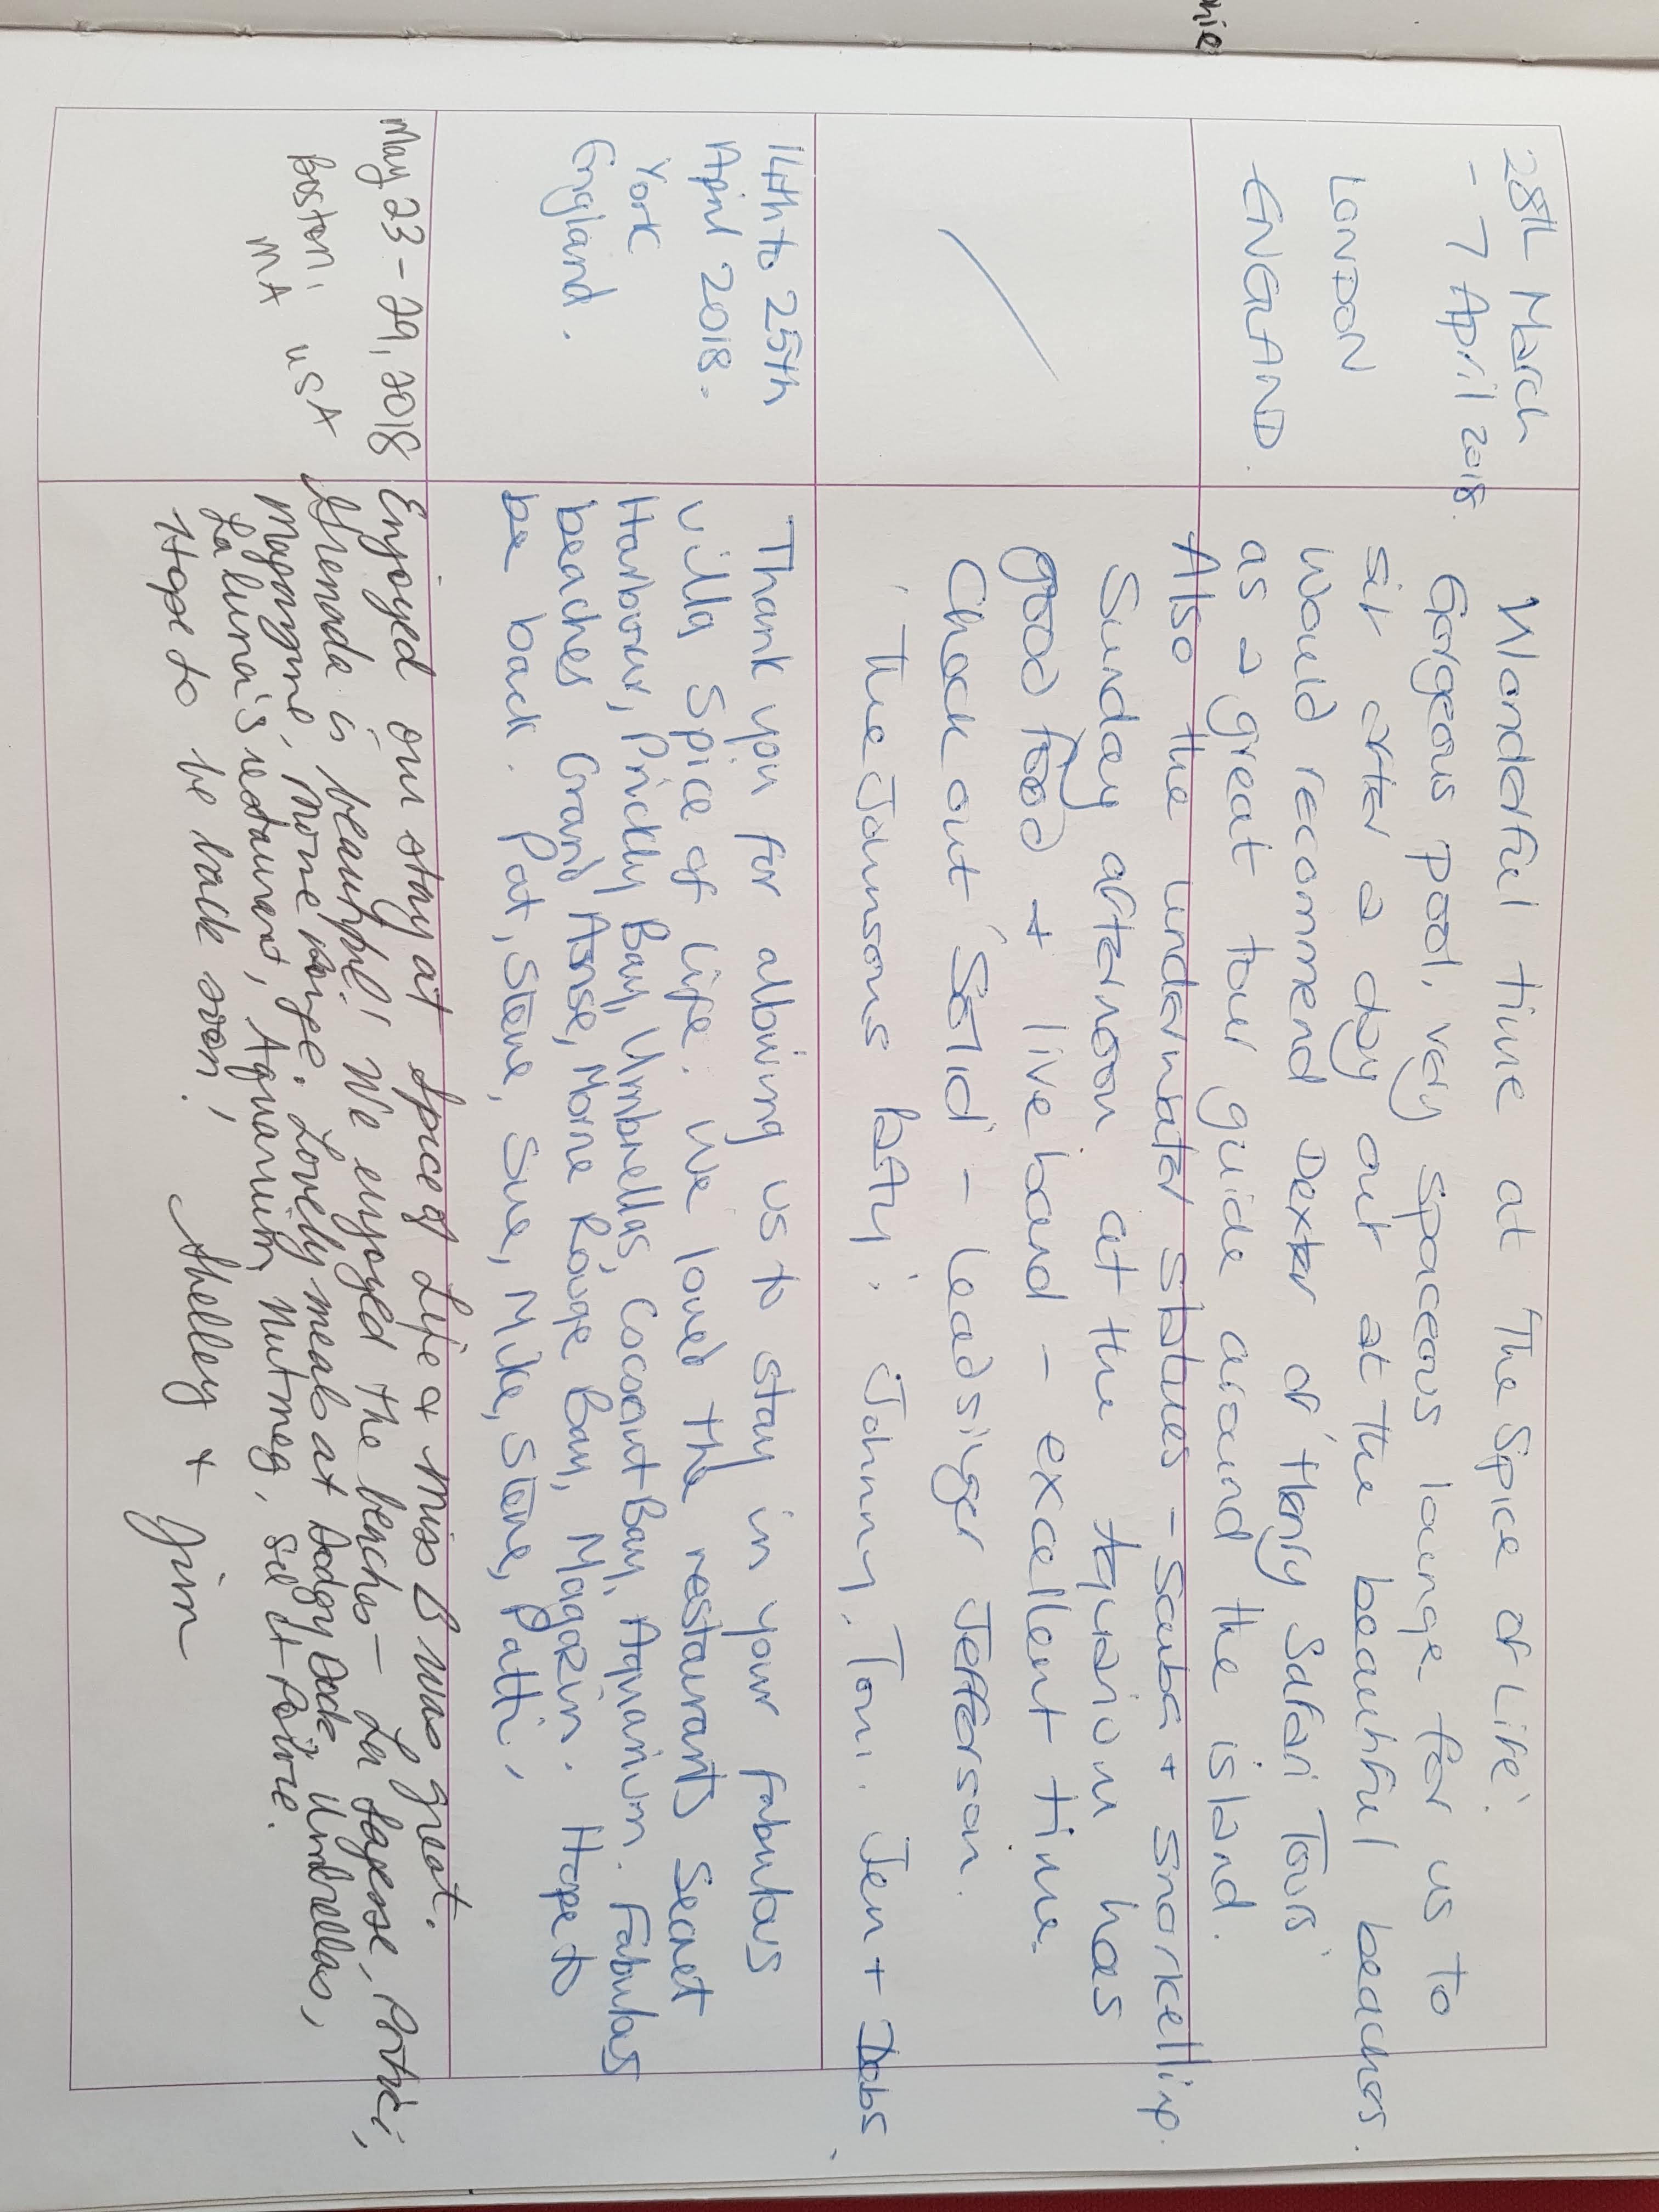 nie
28th March
- 7 April 2018.
LONDON
ENGLAND.
Wonderful time at 'The Spice of Life'.
Gorgeous pool, very spaceous lounge for us to
sit after a day out at the beautiful beaches.
Would recommend Dexter of 'Henry Safari Tours'
as a great tour guide around the island.
Also the underwater statues - scuba + snorkelling.
Sunday afternoon at the Aquarium has
good food + live band - excellent time.
Check out 'Solid' - lead singer Jefferson.
'The Johnsons' Johnny, Toni, Jen + Debs.
14th to 25th
April 2018.
York
England.
Thank you for allowing us to stay in your fabulous
villa Spice of Life. We loved the restaurants Secret
Harbour, Prickly Bay, Umbrellas, Coconut Bay, Aquarium. Fabulous
beaches Grand Anse, Morne Rouge Bay, Magazin. Hope to
be back. Pat, Steve, Sue, Mike, Steve, Patti,
May 23 - 29, 2018
Boston,
MA USA
Enjoyed our stay at Spice of Life & Miss B was great.
Grenada is beautiful! We enjoyed the beachs - La Sagesse, Portici,
Magazine, Morne Rouge. Lovely meals at Dodgy Dock, Umbrellas,
La Luna's restaurant, Aquarium, Nutmeg, Sel et Poivre.
Hope to be back soon!
Shelley + Jim